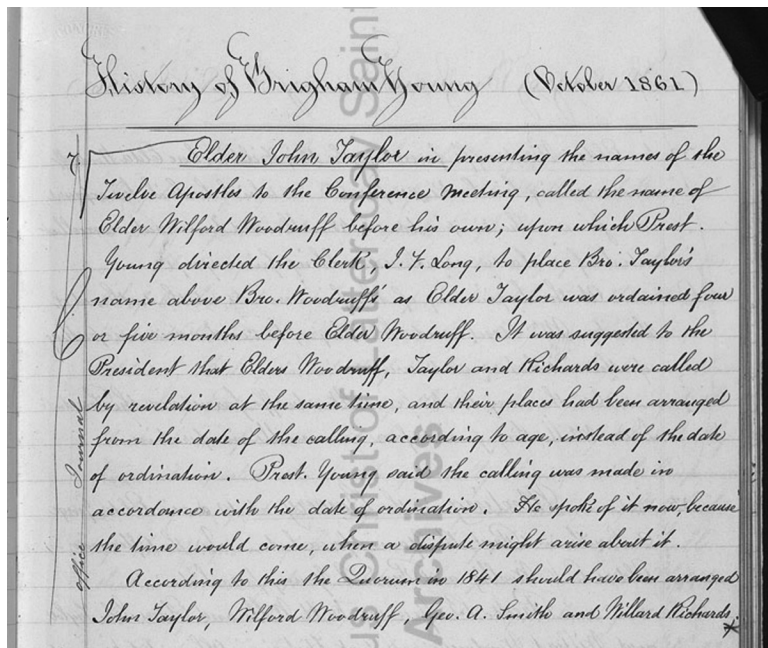 History of Brigham Young (October 1861)
7. Elder John Taylor in presenting the names of the
Twelve Apostles to the Conference meeting, called the name of
Elder Wilford Woodruff before his own; upon which Prest.
Young directed the Clerk, J. V. Long, to place Bro. Taylor's
name above Bro. Woodruff's as Elder Taylor was ordained four
or five months before Elder Woodruff. It was suggested to the
President that Elders Woodruff, Taylor and Richards were called
by revelation at the same time, and their places had been arranged
from the date of the calling, according to age, instead of the date
of ordination. Prest. Young said the calling was made in
accordance with the date of ordination. He spoke of it now, because
the time would come, when a dispute might arise about it.
According to this the Quorum in 1841 should have been arranged
John Taylor, Wilford Woodruff, Geo. A. Smith and Willard Richards.
Office Journal
Archives